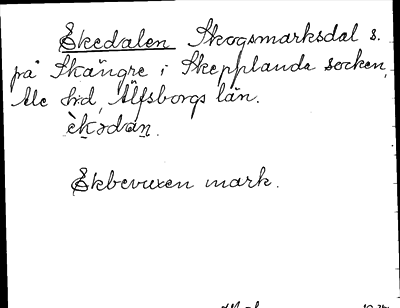 Ekedalen Skogsmarksdal s.
på Skängre i Skepplanda socken,
Ale hd, Älfsborgs län.
èkədan.
Ekbevuxen mark.